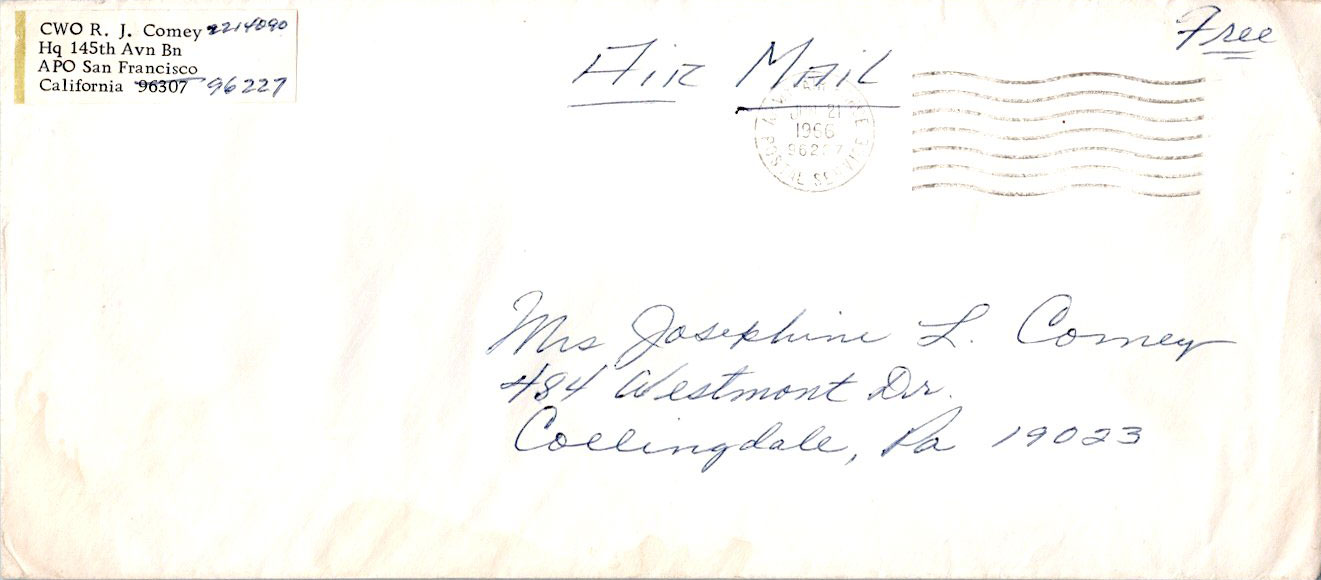 CWO R. J. Comey 2214090
Hq 145th Avn Bn
APO San Francisco
California 96307 96227
Free
Air Mail
21
1966
POSTAL SERVICE
Mrs Josephine L. Comey
484 Westmont Dr.
Collingdale, Pa 19023